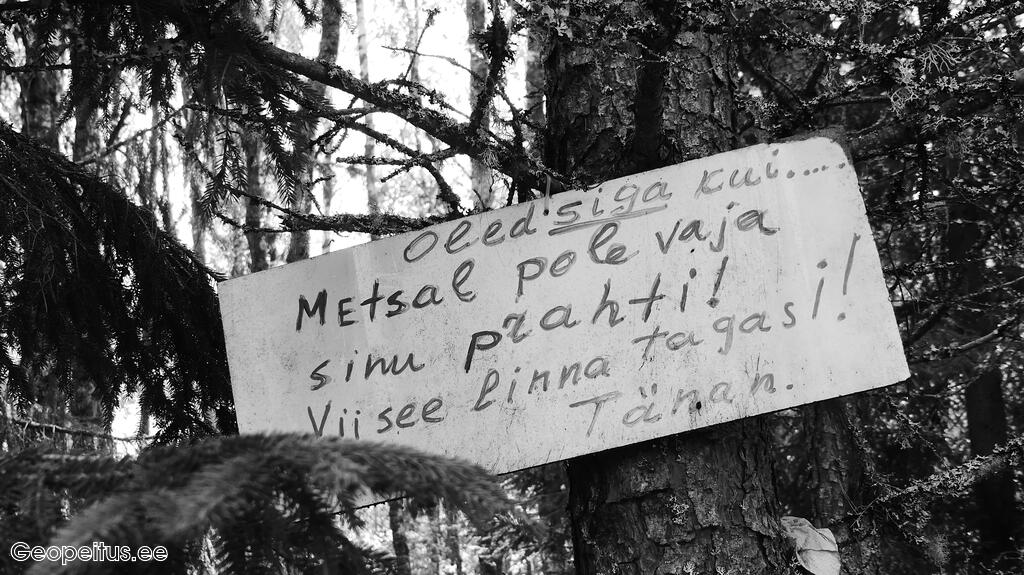 Oled siga kui.....
Metsal pole vaja
sinu prahti!
Vii see linna tagasi!
Tänan.
Geopeitus.ee